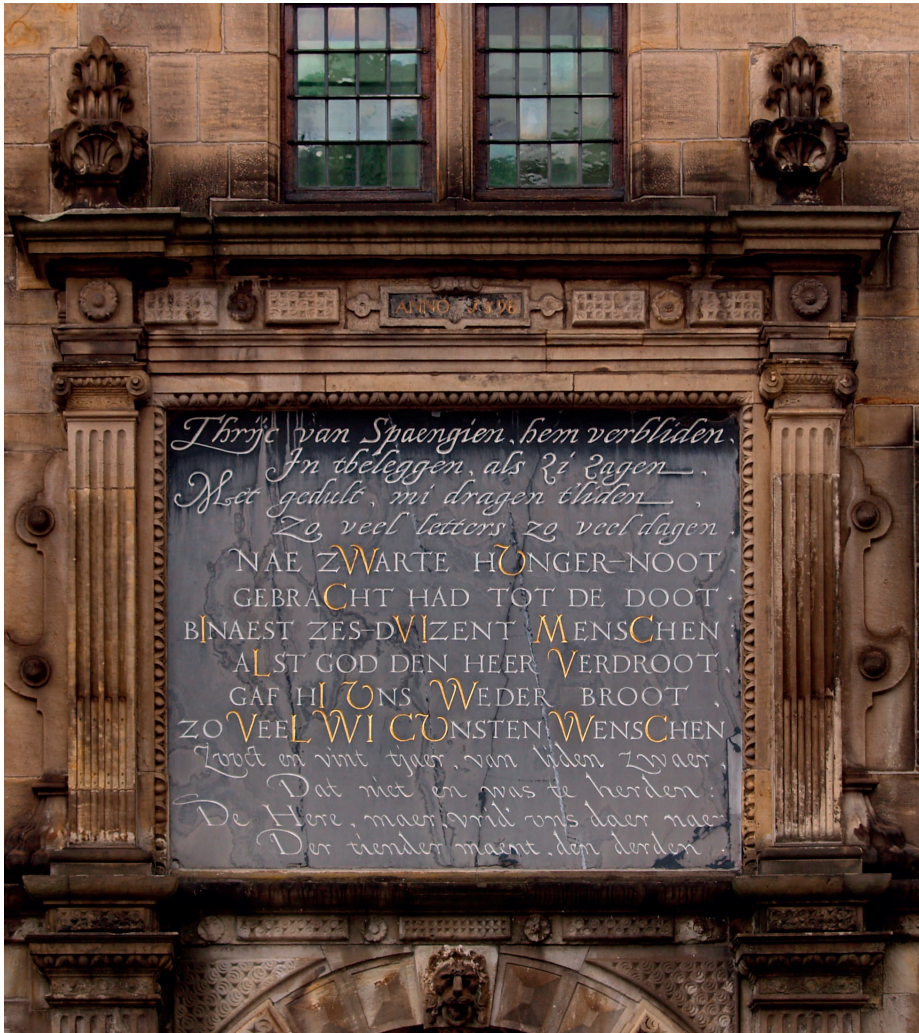 ANNO 1596
Thrijc van Spaengien, hem verbliden,
In tbeleggen, als Zi Zagen,
Met gedult, mi dragen tliden,
Zo veel letters zo veel dagen.
NAE ZWARTE HUNGER-NOOT,
GEBRACHT HAD TOT DE DOOT
BINAEST ZES-DVIZENT MENSCHEN
ALST GOD DEN HEER VERDROOT,
GAF HI UNS WEDER BROOT,
ZO VEEL WI CUNSTEN WENSCHEN
Looct en vint tjaer, van liden zwaer,
Dat niet en was te herden:
De Here, maer vrid' ons daer nae
Der tiender maent, den derden.